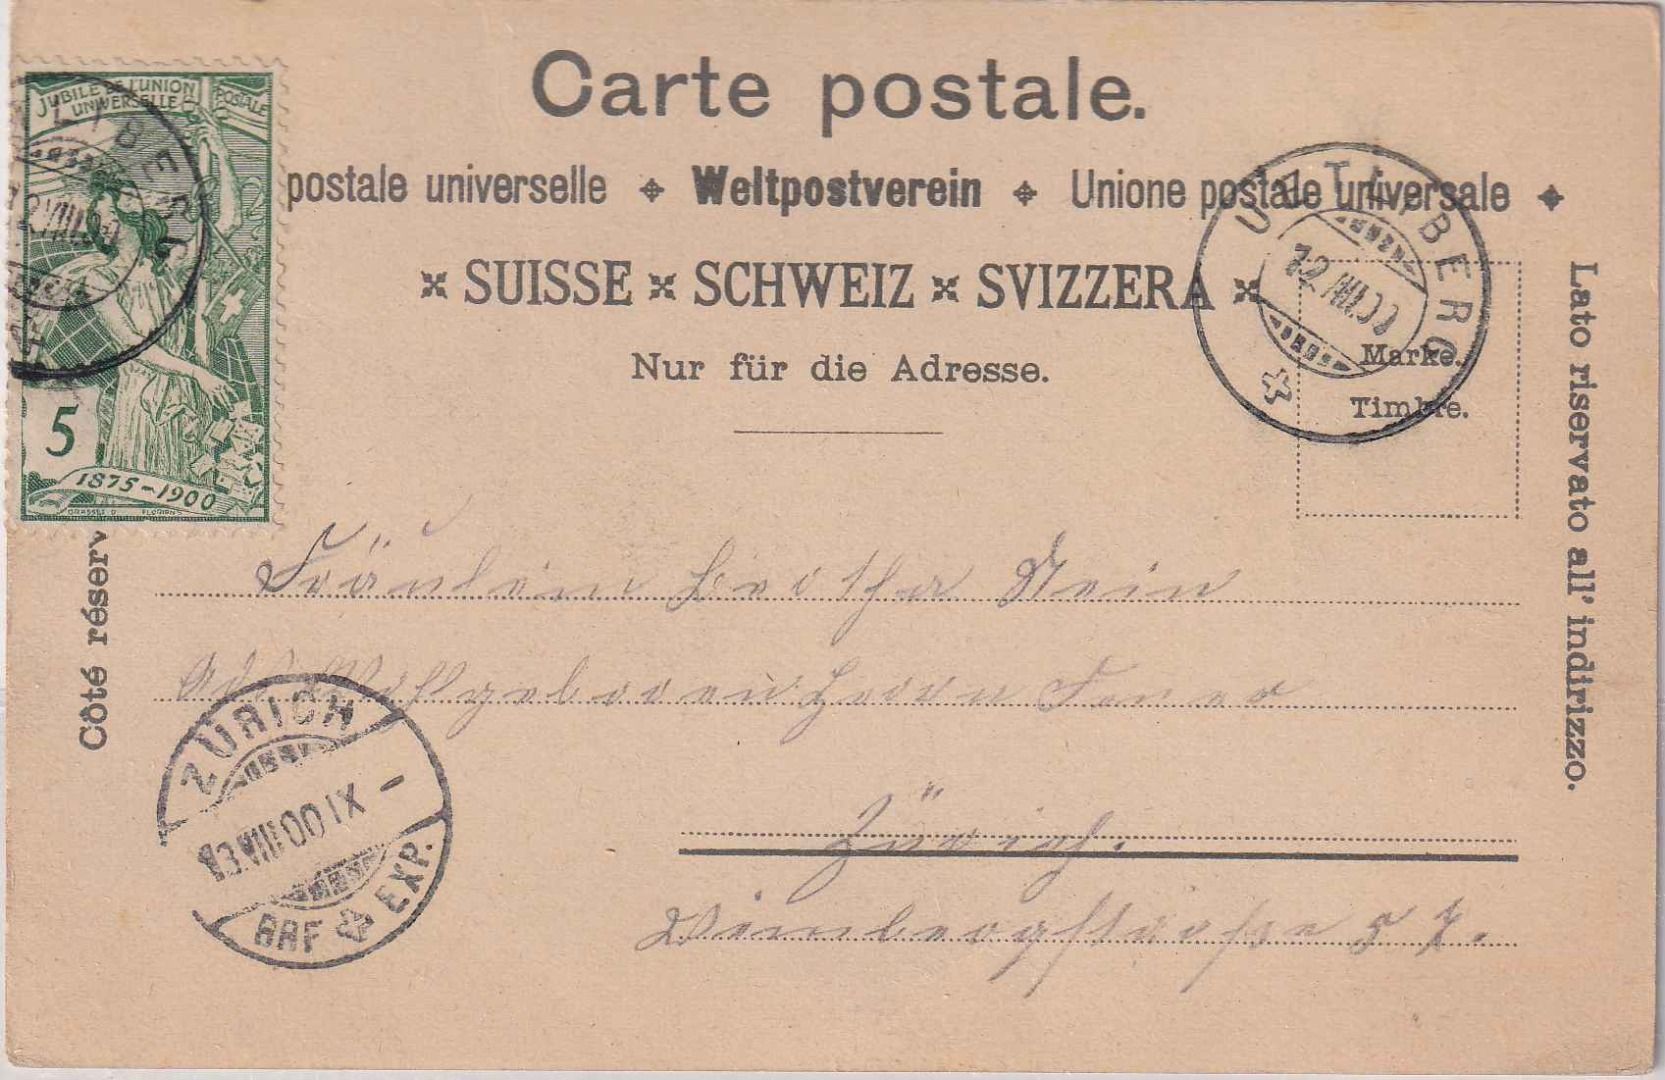 Carte postale.
postale universelle Weltpostverein Unione postale universale
SUISSE SCHWEIZ SVIZZERA
Nur für die Adresse.
Marke.
Timbre.
JUBILÉ DE L'UNION POSTALE
UNIVERSELLE
5
1875-1900
GRASSET D. FLORIAN S.
LIBERG
UETLIBERG
12 VIII 00
Côté réserv
Lato riservato all' indirizzo.
Fräulein Bertha Stein
Wohlgeboren Herrn
Zürich.
Weinbergstrasse 57.
ZÜRICH
13.VIII.00 IX -
BRF EXP.